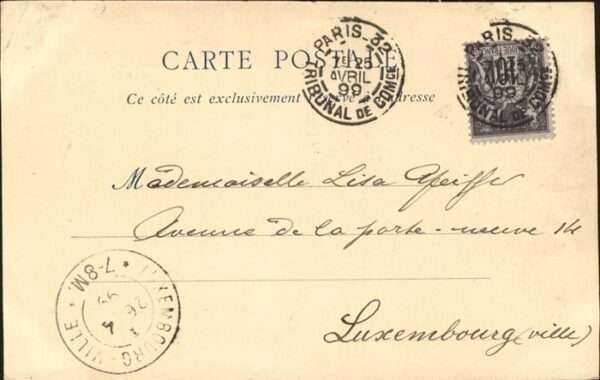 CARTE POSTALE
Ce côté est exclusivement réservé à l'adresse
PARIS_32
7E 25
AVRIL
99
TRIBUNAL DE COMCE
PARIS_32
10
99
TRIBUNAL DE COMCE
Mademoiselle Lisa Pfeiffer
Avenue de la porte-neuve 14
Luxembourg (ville)
LUXEMBOURG-VILLE
7-8M
26
4
99